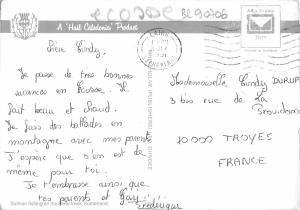 ecosse BE90706
A "Hail Caledonia" Product
Affix Postage
Here
Chère Cindy,
Je passe de très bonnes
vacances en Ecosse. Il
fait beau et chaud.
Je fais des ballades en
montagne avec mes parents
J'espère que s'en est de
même pour toi.
Je t'embrasse ainsi que
tes parents et Gaïj
Frédérique
Mademoiselle Cindy DURUP
3 bis rue de la
Providence
10000 TROYES
FRANCE
Salmon fishing on the River Inver, Sutherland.